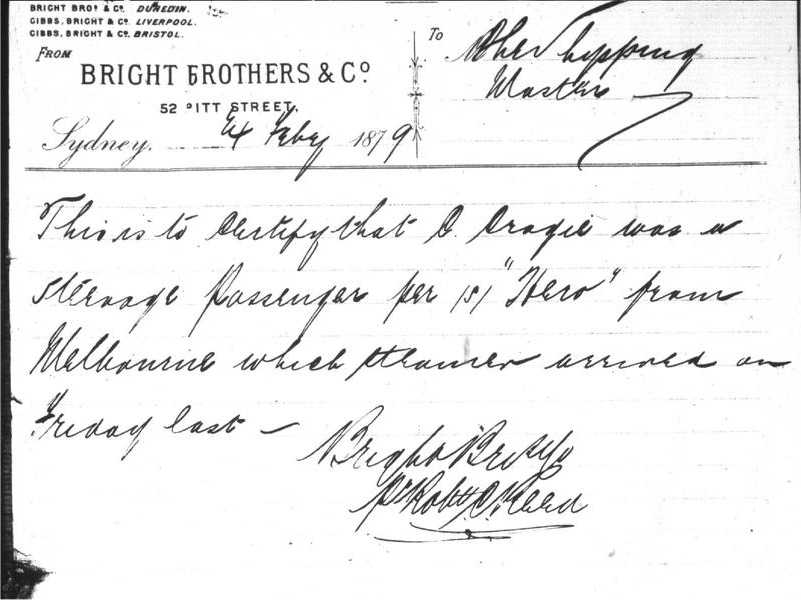 BRIGHT BROS & Co. DUNEDIN.
GIBBS, BRIGHT & Co. LIVERPOOL.
GIBBS, BRIGHT & Co. BRISTOL.
FROM
BRIGHT BROTHERS & Co
52 PITT STREET,
Sydney. 4 Feby 1879
To
Shipping
Master
This is to certify that C. was a
steerage Passenger per S/S "Hero" from
Melbourne which steamer arrived on
Friday last –
Bright Bros & Co
pr Robt